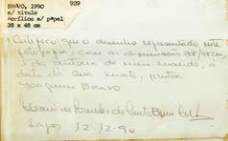 BRAVO, 1990
s/ título
acrílico s/ papel
38 x 48 cm
989
Certifico que o desenho representado nesta
fotografia, com as dimensões 38/48cm,
é da autoria do meu marido, à
data da sua morte, pintor
Joaquim Bravo
Lagos 12-12-90